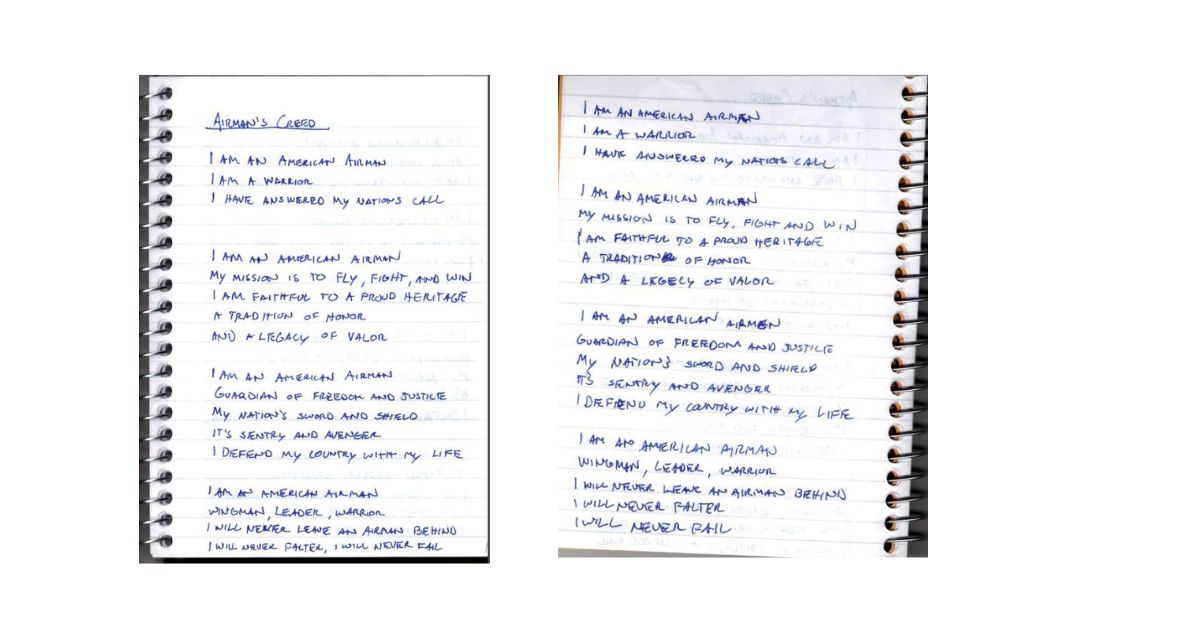 AIRMAN'S CREED
I AM AN AMERICAN AIRMAN
I AM A WARRIOR
I HAVE ANSWERED MY NATION'S CALL
I AM AN AMERICAN AIRMAN
MY MISSION IS TO FLY, FIGHT, AND WIN
I AM FAITHFUL TO A PROUD HERITAGE
A TRADITION OF HONOR
AND A LEGACY OF VALOR
I AM AN AMERICAN AIRMAN
GUARDIAN OF FREEDOM AND JUSTICE
MY NATION'S SWORD AND SHIELD
IT'S SENTRY AND AVENGER
I DEFEND MY COUNTRY WITH MY LIFE
I AM AN AMERICAN AIRMAN
WINGMAN, LEADER, WARRIOR
I WILL NEVER LEAVE AN AIRMAN BEHIND
I WILL NEVER FALTER, I WILL NEVER FAIL
I AM AN AMERICAN AIRMAN
I AM A WARRIOR
I HAVE ANSWERED MY NATIONS CALL
I AM AN AMERICAN AIRMAN
MY MISSION IS TO FLY, FIGHT AND WIN
I AM FAITHFUL TO A PROUD HERITAGE
A TRADITION OF HONOR
AND A LEGECY OF VALOR
I AM AN AMERICAN AIRMEN
GUARDIAN OF FREEDOM AND JUSTICE
MY NATION'S SWORD AND SHIELD
IT'S SENTRY AND AVENGER
I DEFEND MY COUNTRY WITH MY LIFE
I AM AN AMERICAN AIRMAN
WINGMAN, LEADER, WARRIOR
I WILL NEVER LEAVE AN AIRMAN BEHIND
I WILL NEVER FALTER
I WILL NEVER FAIL